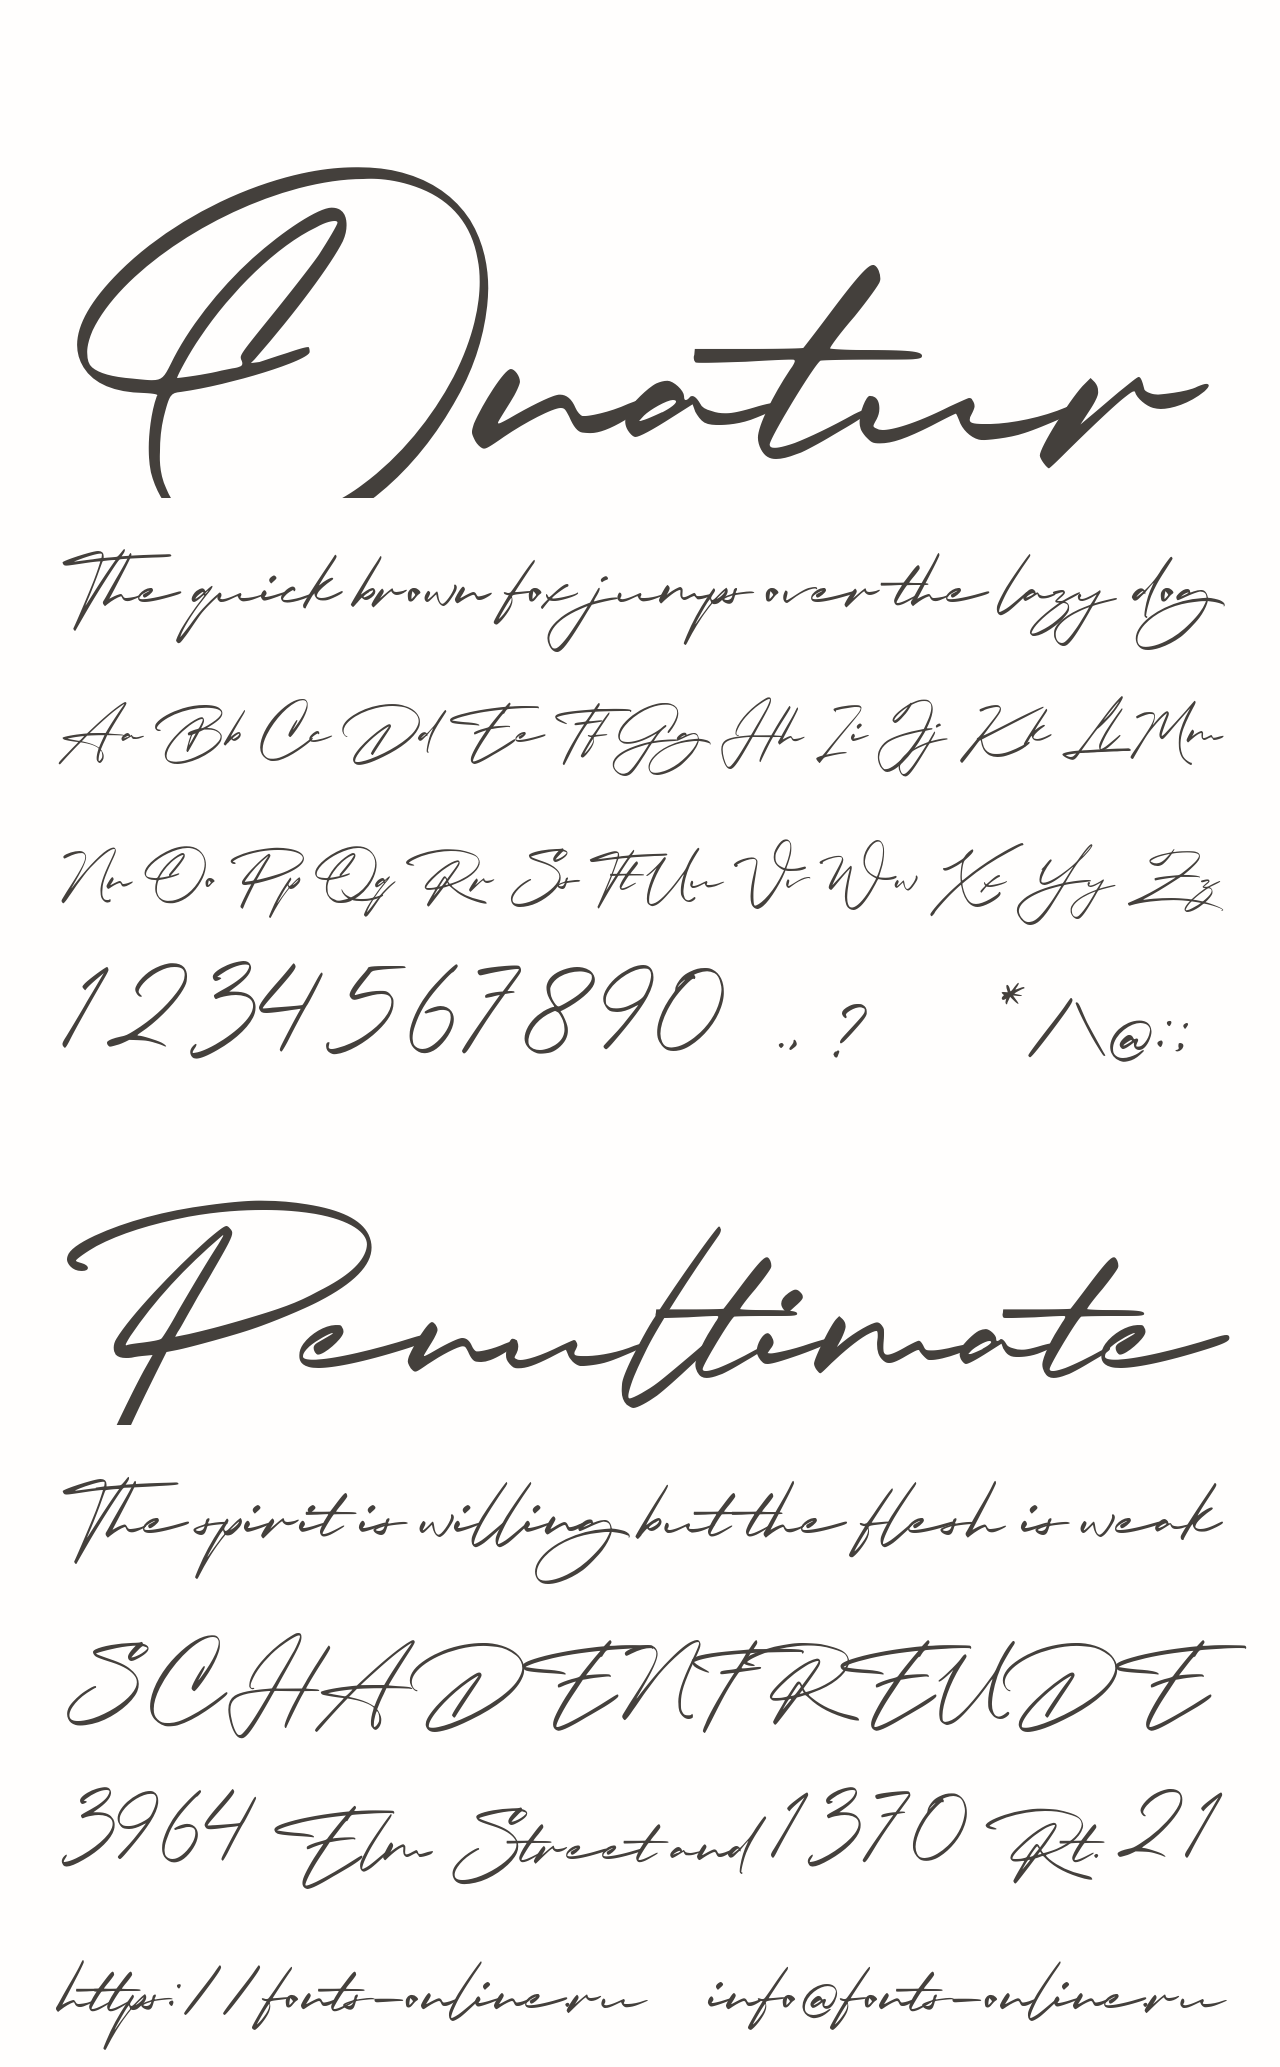 Onatur
The quick brown fox jumps over the lazy dog
Aa Bb Cc Dd Ee Ff Gg Hh Ii Jj Kk Ll Mm
Nn Oo Pp Qq Rr Ss Tt Uu Vv Ww Xx Yy Zz
1234567890 ., ? * /\@:;
Penultimate
The spirit is willing but the flesh is weak
SCHADENFREUDE
3964 Elm Street and 1370 Rt. 21
https://fonts-online.ru info@fonts-online.ru